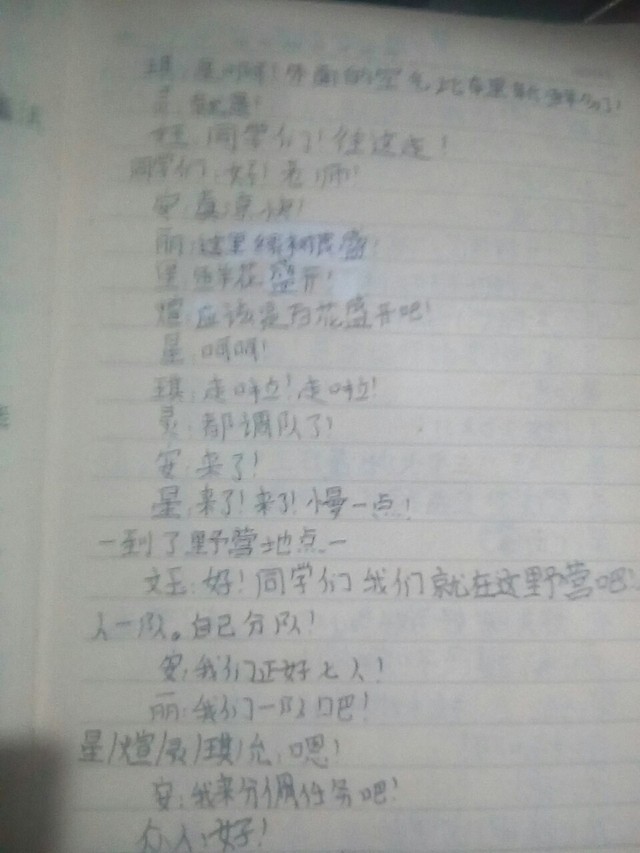 琪:是啊!外面的空气比
灵:就是!
同学们!往这走!
同学们:好!老师!
安:真凉快!
丽:这里绿树很盛!
星:鲜花盛开!
煊:应该是百花盛开吧!
星:呵呵!
琪:走啦!走啦!
灵:都调队了!
安:来了!
星:来了!来了!慢一点!
一到了野营地点一
好!同学们我们就在这野营吧!
人一队。自己分队!
安:我们正好七人!
丽:我们一队吧!
星/煊/灵/琪/允:嗯!
安:我来分调任务吧!
众人:好!